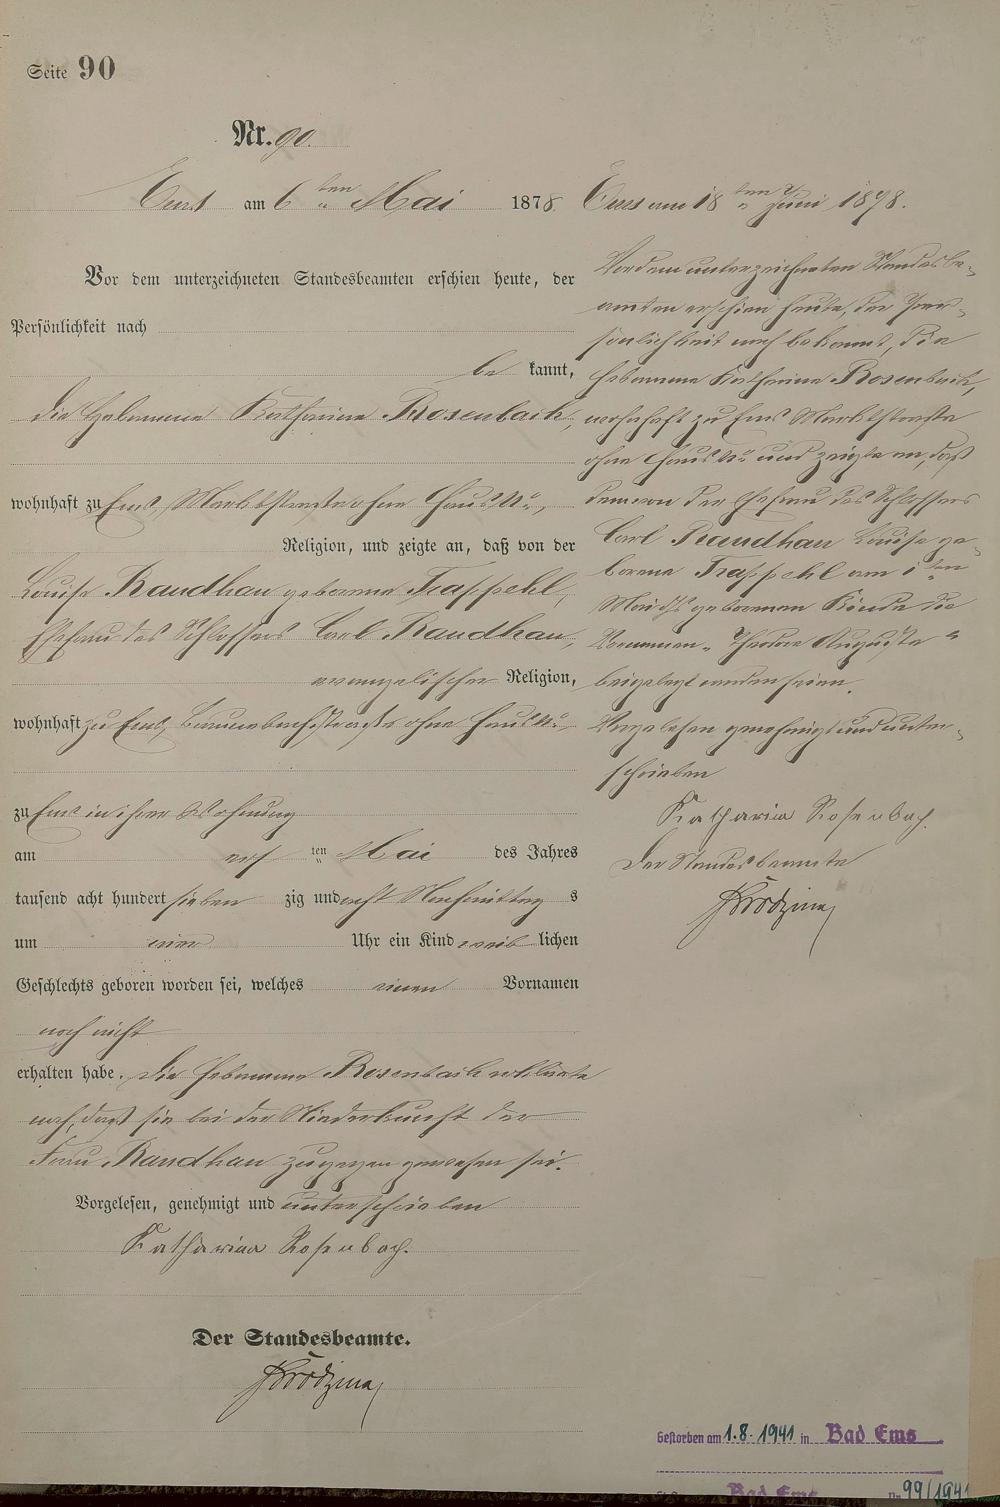 Seite 90
Nr. 90.
Ems am 6ten Mai 1878.
Vor dem unterzeichneten Standesbeamten erschien heute, der
Persönlichkeit nach
bekannt,
die Hebamme Katharina Rosenbach,
wohnhaft zu Ems, Marktstraße ohne Haus No,
Religion, und zeigte an, daß von der
Louise Raudhau geborene Trappehl,
Ehefrau des Schlossers Carl Raudhau,
evangelischer Religion,
wohnhaft zu Ems, ohne Haus No
zu Ems in ihrer Wohnung
am ten Mai des Jahres
tausend acht hundert siebenzig und acht Nachmittags
um Uhr ein Kind weiblichen
Geschlechts geboren worden sei, welches einen Vornamen
noch nicht
erhalten habe. Die Hebamme Rosenbach erklärte
noch, daß sie bei der Niederkunft der
Frau Raudhau zugegen gewesen sei.
Vorgelesen, genehmigt und unterschrieben
Katharina Rosenbach.
Der Standesbeamte.
Ems am 18ten Juni 1878.
Vor dem unterzeichneten Standesbe-
amten erschien heute, der Per-
sönlichkeit nach bekannt, die
Hebamme Katharina Rosenbach,
wohnhaft zu Ems Marktstraße
ohne Haus No und zeigte an, daß
dem von der Ehefrau des Schlossers
Carl Raudhau Louise ge-
borene Trappehl am ten
Mai geborenen Kinde die
Vornamen „Theodore Auguste“
beigelegt worden seien.
Vorgelesen genehmigt und unter-
schrieben
Katharina Rosenbach.
Der Standesbeamte
Gestorben am 1.8.1941 in Bad Ems
Bad Ems Nr. 99/1941